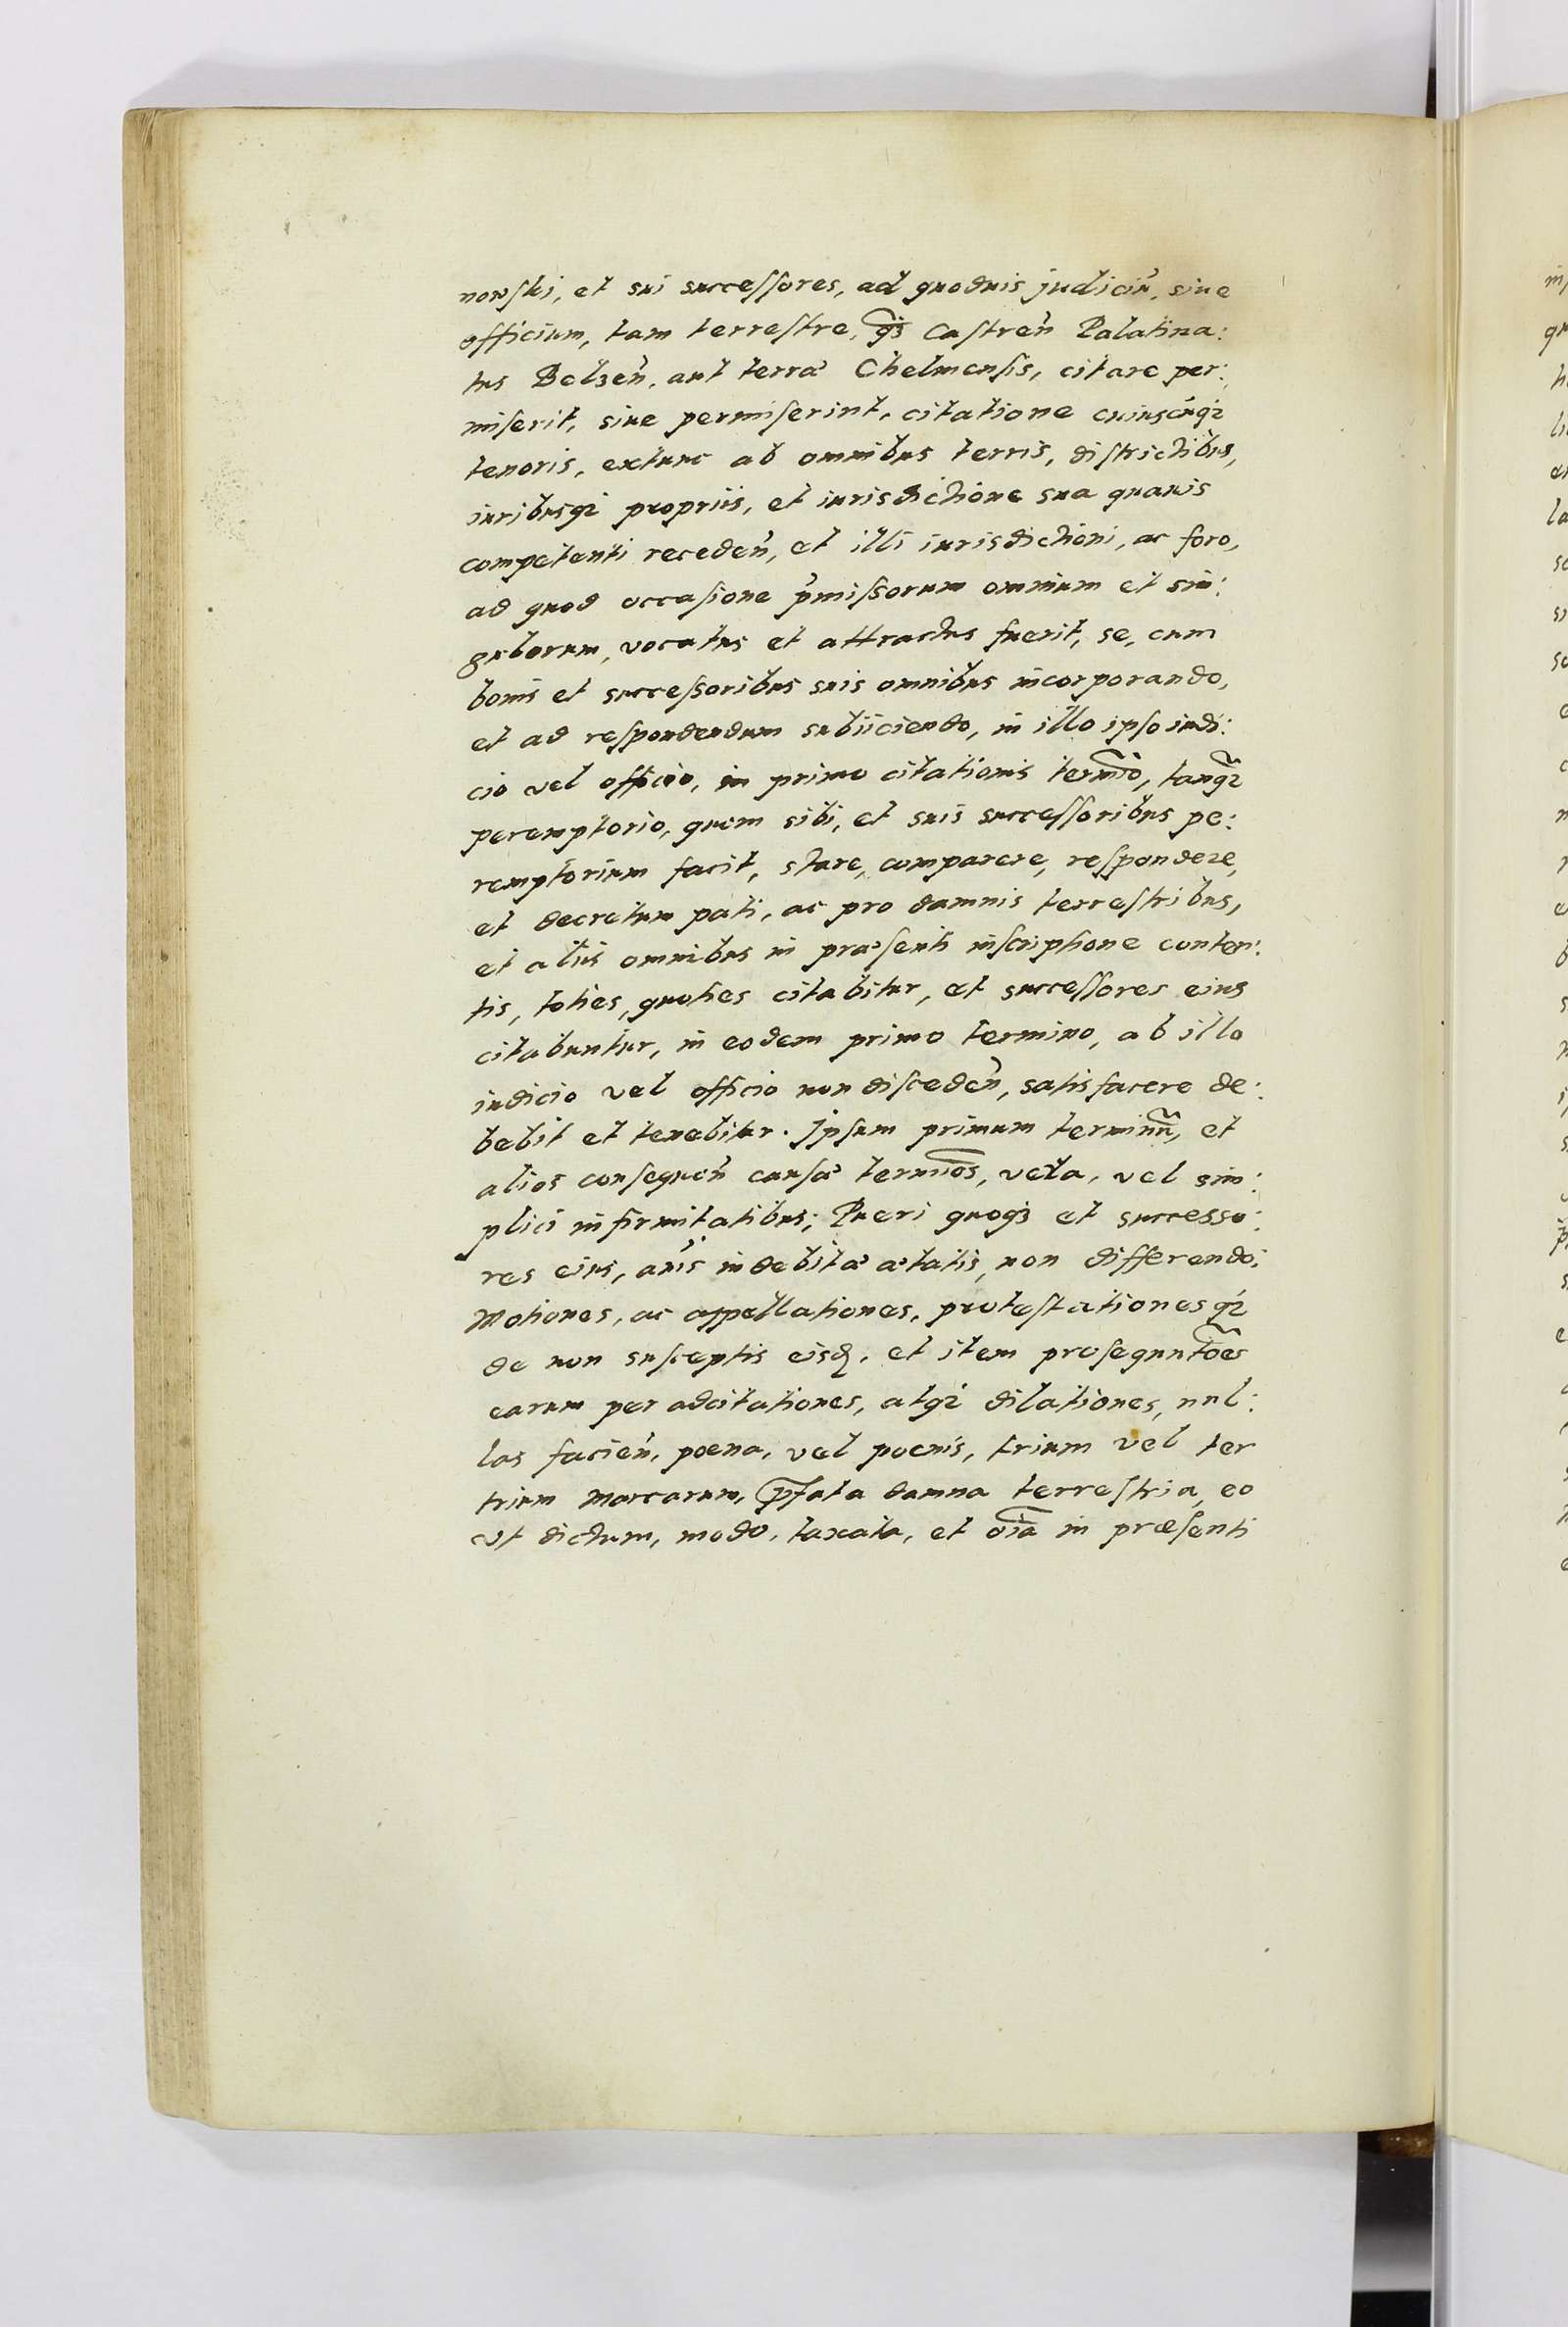 nowski, et sui successores, ad quoduis judiciũ, siue
officium, tam terrestre, q̃ȝ Castreñ Palatina:
tus Belzeñ, aut terræ Chelmensis, citare per:
miserit, siue permiserint, citatione cuiuscũq;
tenoris, extunc ab omnibus terris, districtibus,
iuribusq; propriis, et iurisdictione sua quauis
competenti recedeñ, et illi iurisdictioni, ac foro,
ad quod occasione p̃missorum omnium et sin:
gulorum, vocatus et attractus fuerit, se, cum
bonis et successoribus suis omnibus incorporando,
et ad respondendum subiiciendo, in illo ipso iudi:
cio vel officio, in primo citationis termĩo, tanq̃;
peremptorio, quem sibi, et suis successoribus pe:
remptorium facit, stare, comparere, respondere,
et decretum pati, ac pro damnis terrestribus,
et aliis omnibus in præsenti inscriptione conten:
tis, toties, quoties citabitur, et successores eius
citabuntur, in eodem primo termino, ab illo
iudicio vel officio non discedeñ, satisfacere de:
bebit et tenebitur. Ipsum primum terminũ, et
alios consequeñ causæ termĩos, vera, vel sim:
plici infirmitatibus; Pueri quoqȝ et successo:
res eius, añis indebitæ ætatis, non differendo.
Motiones, ac appellationes, protestationesq;
de non susceptis eisd, et item prosequutões
earum per adcitationes, atq; dilationes, nul:
las facieñ, poena, vel poenis, trium vel ter
trium marcarum, p̃fata damna terrestria, eo
vt dictum, modo, taxata, et oĩa in præsenti